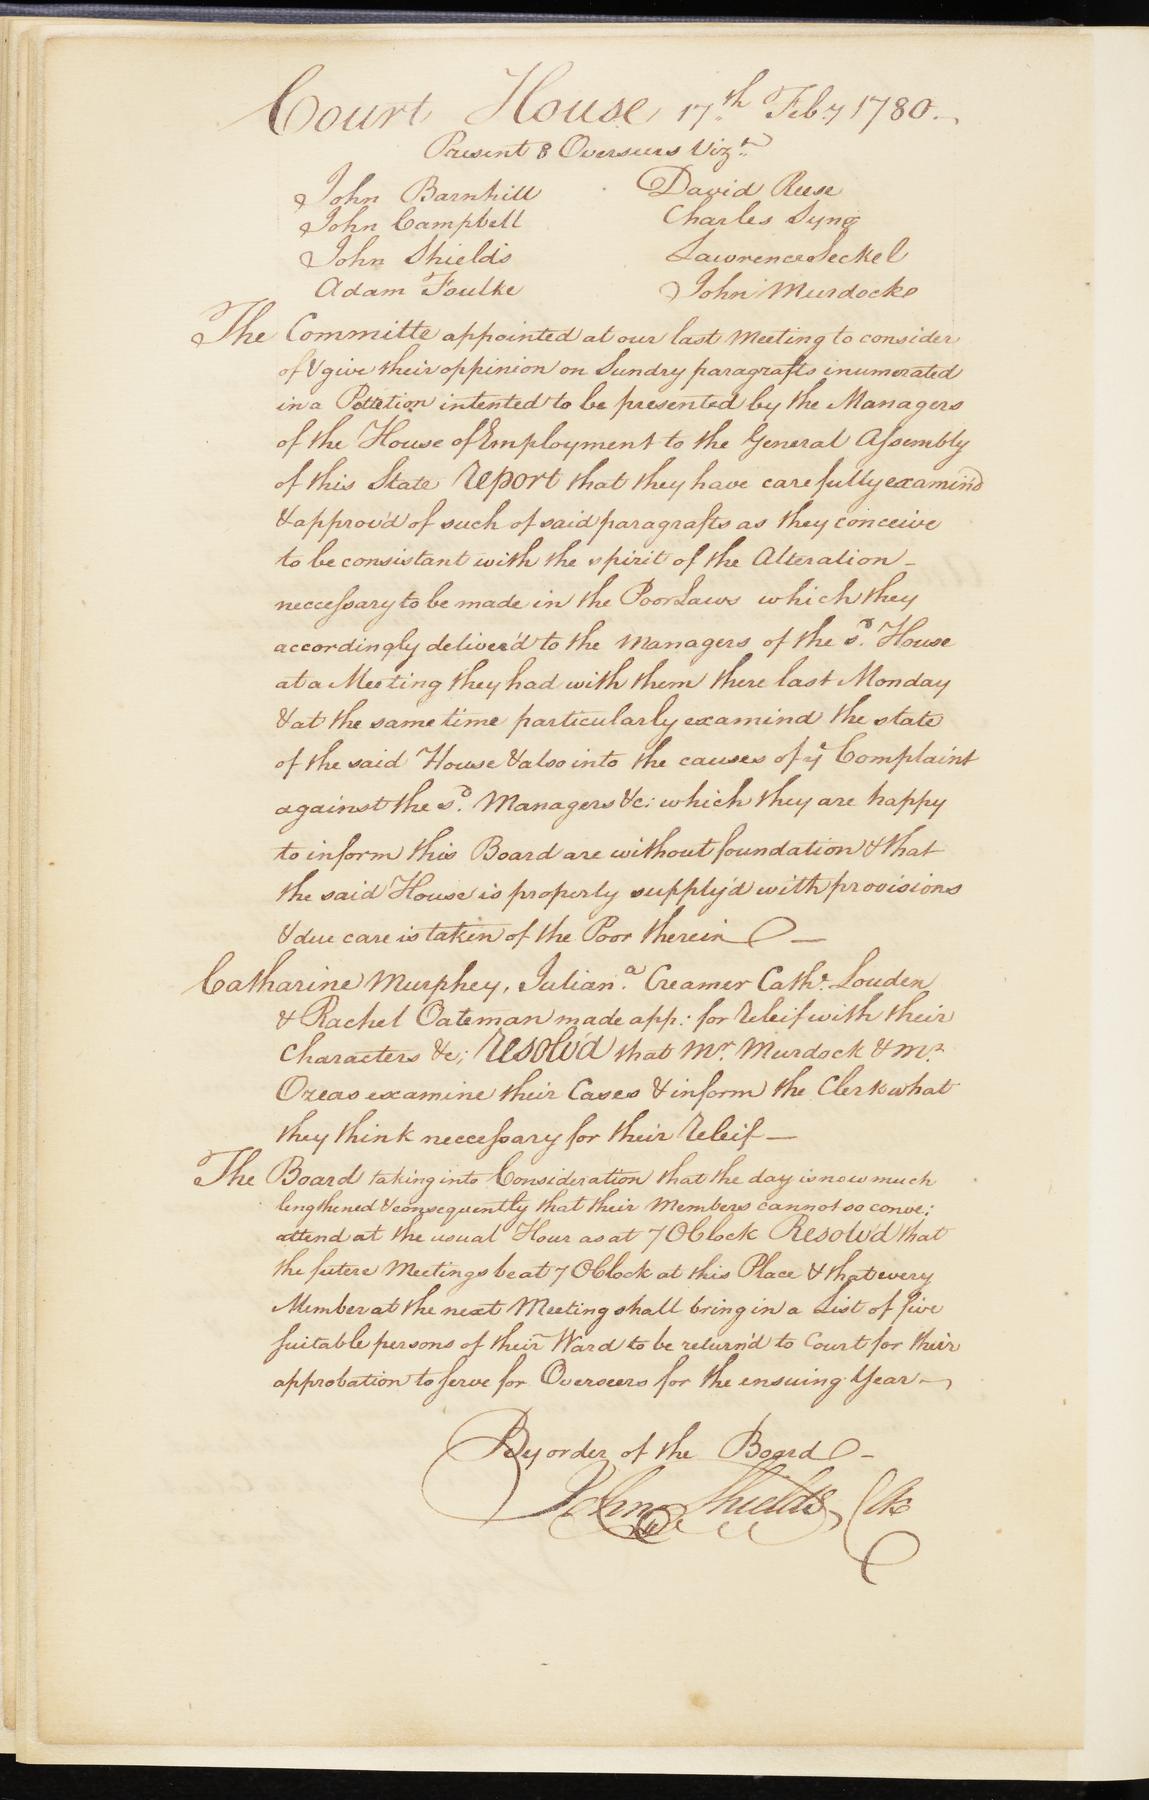 Court House 17th Feby 1780.
Present 8 Overseers Vizt
John Barnhill David Reese
John Campbell Charles Syng
John Shields Lawrence Seckel
Adam Foulke John Murdock
The Committe appointed at our last Meeting to consider
of & give their oppinion on Sundry paragrafts inumerated
in a Petetion intented to be presented by the Managers
of the House of Employment to the General Assembly
of this State report that they have carefully examin'd
& approv'd of such of said paragrafts as they conceive
to be consistant with the spirit of the Alteration
neccessary to be made in the Poor Laws which they
accordingly deliver'd to the Managers of the sd. House
at a Meeting they had with them there last Monday
& at the same time particularly examind the state
of the said House & also into the causes of ye Complaint
against the sd. Managers &c: which they are happy
to inform this Board are without foundation & that
the said House is properly supply'd with provisions
& due care is taken of the Poor therein —
Catharine Murphey, Juliana. Creamer Cathe. Louden
& Rachel Oateman made app: for releif with their
Characters &c; resolv'd that Mr. Murdock & Mr.
Ozeas examine their Cases & inform the Clerk what
they think neccessary for their releif —
The Board taking into Consideration that the day is now much
lengthened & consequently that their Members cannot so conve:
attend at the usual Hour as at 7 OClock Resolv'd that
the futere Meetings be at 7 OClock at this Place & that every
Member at the next Meeting shall bring in a List of five
suitable persons of their Ward to be return'd to Court for their
approbation to serve for Overseers for the ensuing Year —
By order of the Board —
John Shields Clk